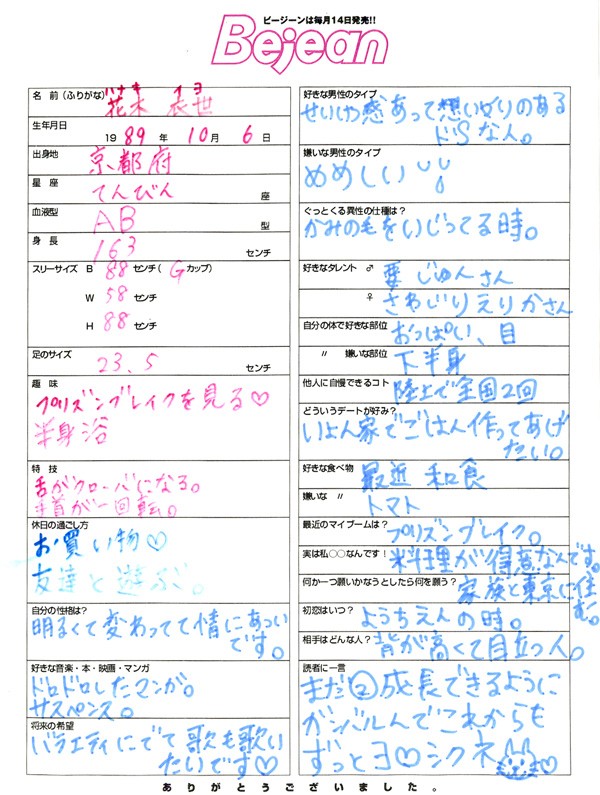 ビージーンは毎月14日発売!!
Bejean
名 前 (ふりがな) ハナキ イヨ
花木 衣世
生年月日
1989 年 10 月 6 日
出身地 京都府
星 座 てんびん 座
血液型 AB 型
身 長 163 センチ
スリーサイズ B 88 センチ ( G カップ)
W 58 センチ
H 88 センチ
足のサイズ 23.5 センチ
趣 味
プリズンブレイクを見る♡
半身浴
特 技
舌がクローバになる。
手首が一回転。
休日の過ごし方
お買い物♡
友達と遊ぶ。
自分の性格は?
明るくて変わってて情にあつい
です。
好きな音楽・本・映画・マンガ
ドロドロしたマンガ。
サスペンス。
将来の希望
バラエティにでて歌も歌い
たいです♡
好きな男性のタイプ
せいけつ感あって想いやりのある
ドSな人。
嫌いな男性のタイプ
めめしい
ぐっとくる異性の仕種は?
かみの毛をいじってる時。
好きなタレント ♂ 要 じゅんさん
♀ さわじりえりかさん
自分の体で好きな部位 おっぱい、目
〃 嫌いな部位 下半身
他人に自慢できるコト 陸上で全国2回
どういうデートが好み?
いよん家でごはん作ってあげ
たい。
好きな食べ物 最近 和食
嫌いな 〃 トマト
最近のマイブームは? プリズンブレイク。
実は私○○なんです! 料理が得意なんです。
何か一つ願いかなうとしたら何を願う? 家族と東京に住
む。
初恋はいつ? ようちえんの時。
相手はどんな人? 背が高くて目立つ人。
読者に一言
まだ②成長できるように
ガンバルんでこれからも
ずっとヨ♡シクネ
ありがとうございました。